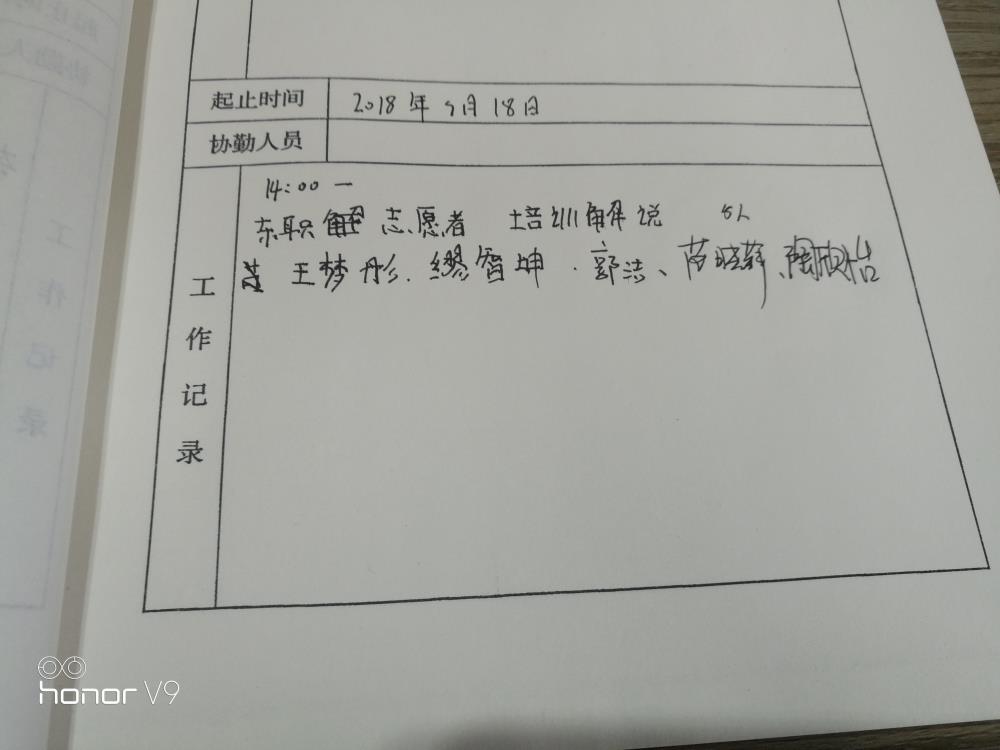 起止时间 2018年9月18日
协勤人员
工作记录
14:00 —
东职 志愿者 培训解说 5人
王梦彤.缪智坤.郭洁、苗晓莉、陶欣怡
honor V9